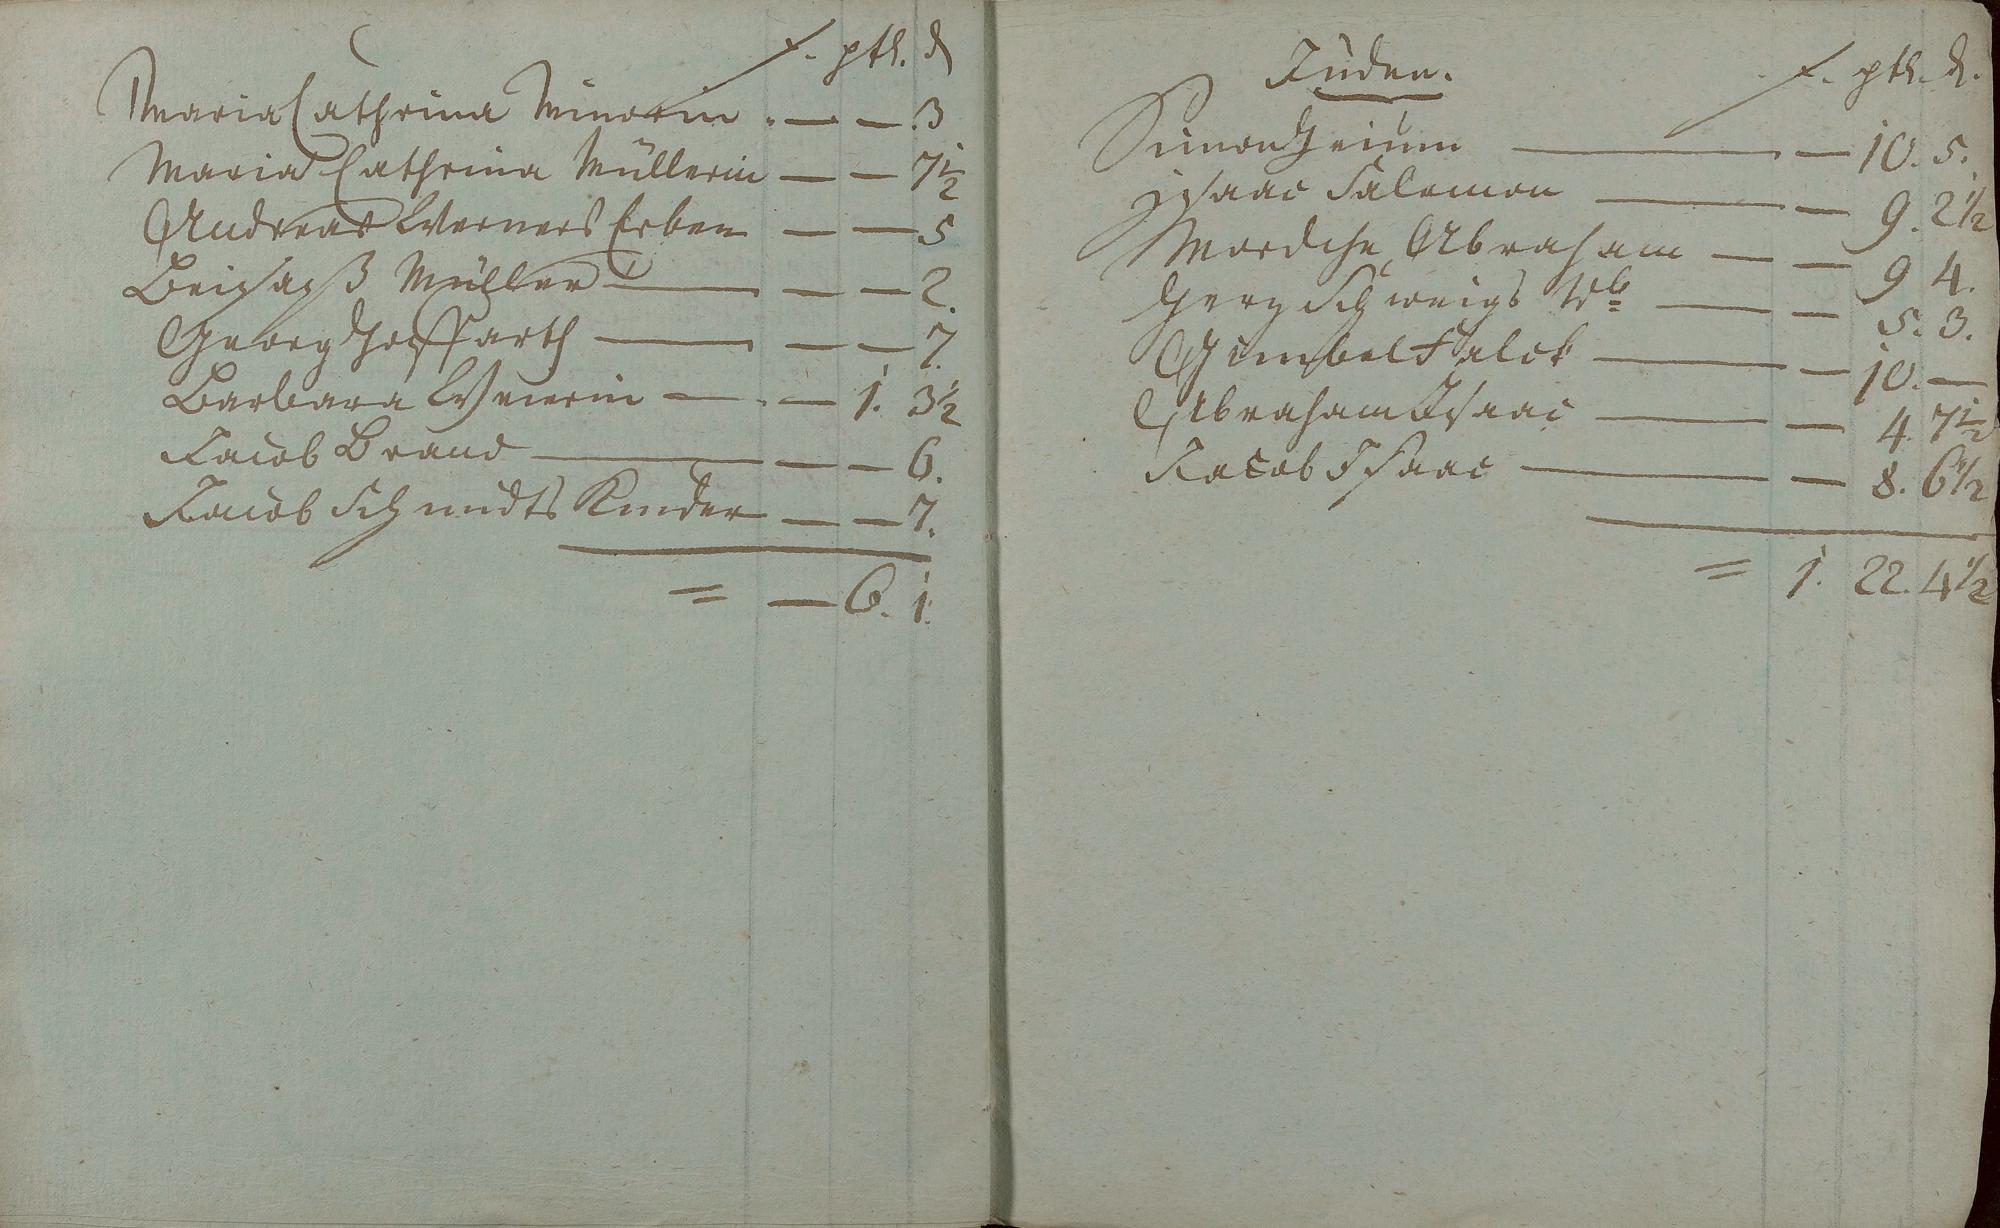 f. pth. ₰
Maria Cathrina Minorin . — — . 3
Maria Cathrina Müllerin — — 7 1/2
Andreas Werners Erben — — 5
Beysaß Müller — — — 2.
Georg Hoffarth — — — 7.
Barbara Weierin — . — 1. 3 1/2
Jacob Brand — — — 6.
Jacob Schmidts Kinder — — 7.
= — 6. 1.
Juden.
f. pth. ₰.
Simon Heium — — 10. 5.
Isaac Salomon — — 9. 2 1/2
Mordche Abraham — — 9 4.
Herz Schweigs Wb — — 5. 3.
Gimbel Falck — — 10. —
Abraham Isaac — — 4. 7 1/2
Jacob Isaac — — 8. 6 1/2
= 1. 22. 4 1/2